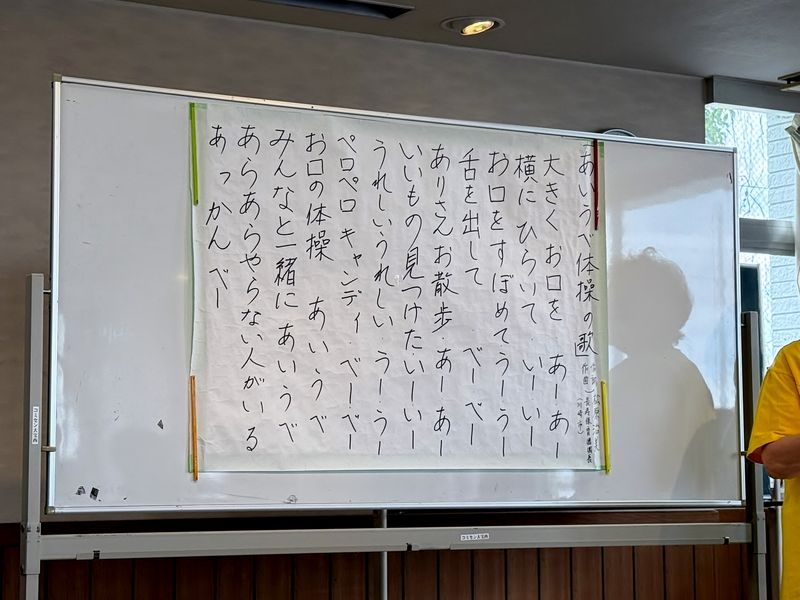 「あいうべ体操の歌」
作詞
作曲
長寿保育園園長
（川崎市）
大きくお口を　あーあー
横に ひらいて・いーいー
お口をすぼめてうーうー
舌を出して　べーべー
ありさんお散歩・あーあー
いいもの見つけた・いーいー
うれしいうれしい・うーうー
ペロペロキャンディ・べーべー
お口の体操　あいうべ
みんなと一緒に あいうべ
あらあらやらない人がいる
あっかんべー
コミセン大宅西
コミセン大宅西